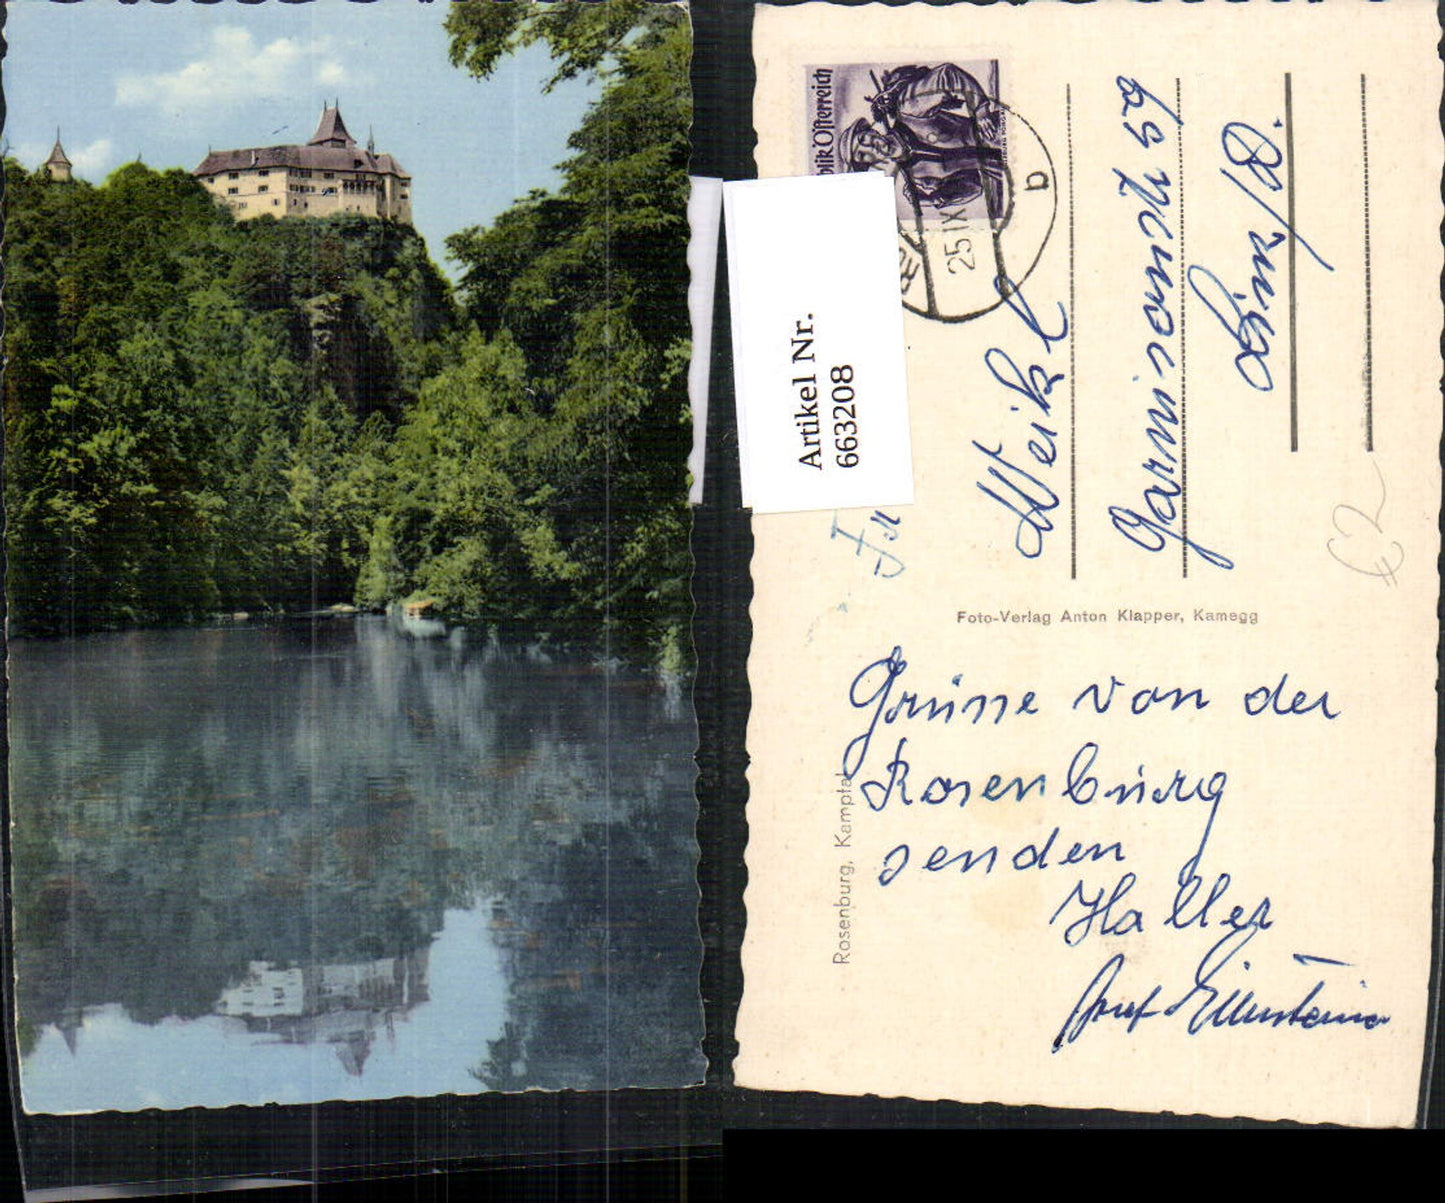 Republik Österreich
25 IX
b
Artikel Nr.
663208
Fr
Weikl
Garnisonstr 59
Linz/D.
€2
Foto-Verlag Anton Klapper, Kamegg
Rosenburg, Kamptal
Grüsse von der
Rosenburg
senden
Haller
Josef